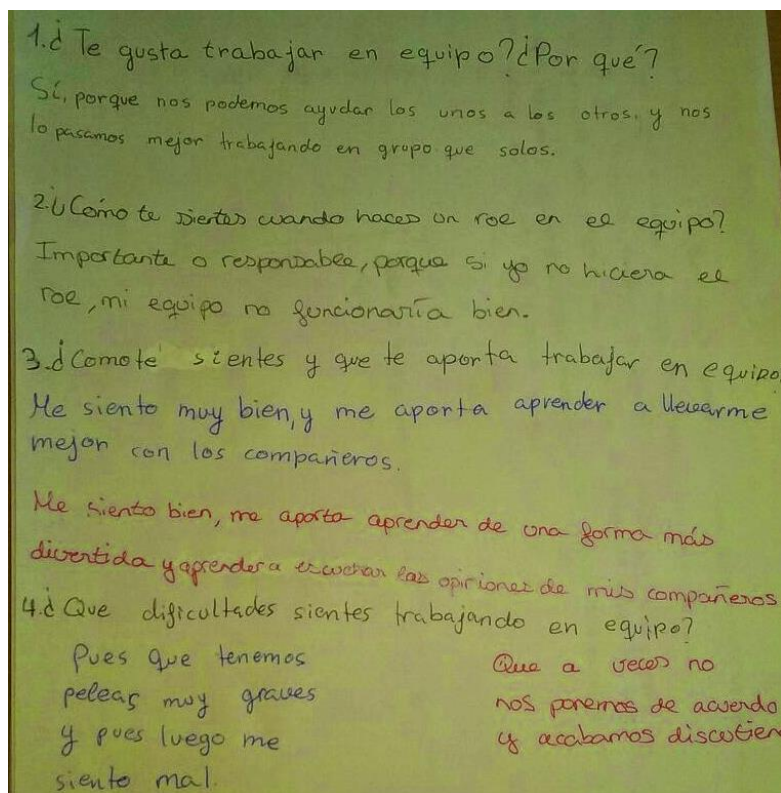 1.¿Te gusta trabajar en equipo?¿Por qué?
Sí, porque nos podemos ayudar los unos a los otros. y nos
lo pasamos mejor trabajando en grupo que solos.
2.¿Cómo te sientes cuando haces un rol en el equipo?
Importante o responsable, porque si yo no hiciera el
rol, mi equipo no funcionaría bien.
3.¿Como te sientes y que te aporta trabajar en equipo
Me siento muy bien, y me aporta aprender a llevarme
mejor con los compañeros.
Me siento bien, me aporta aprender de una forma más
divertida y aprender a escuchar las opiniones de mis compañeros
4.¿Que dificultades sientes trabajando en equipo?
Pues que tenemos
peleas muy graves
y pues luego me
siento mal.
Que a veces no
nos ponemos de acuerdo
y acabamos discutien